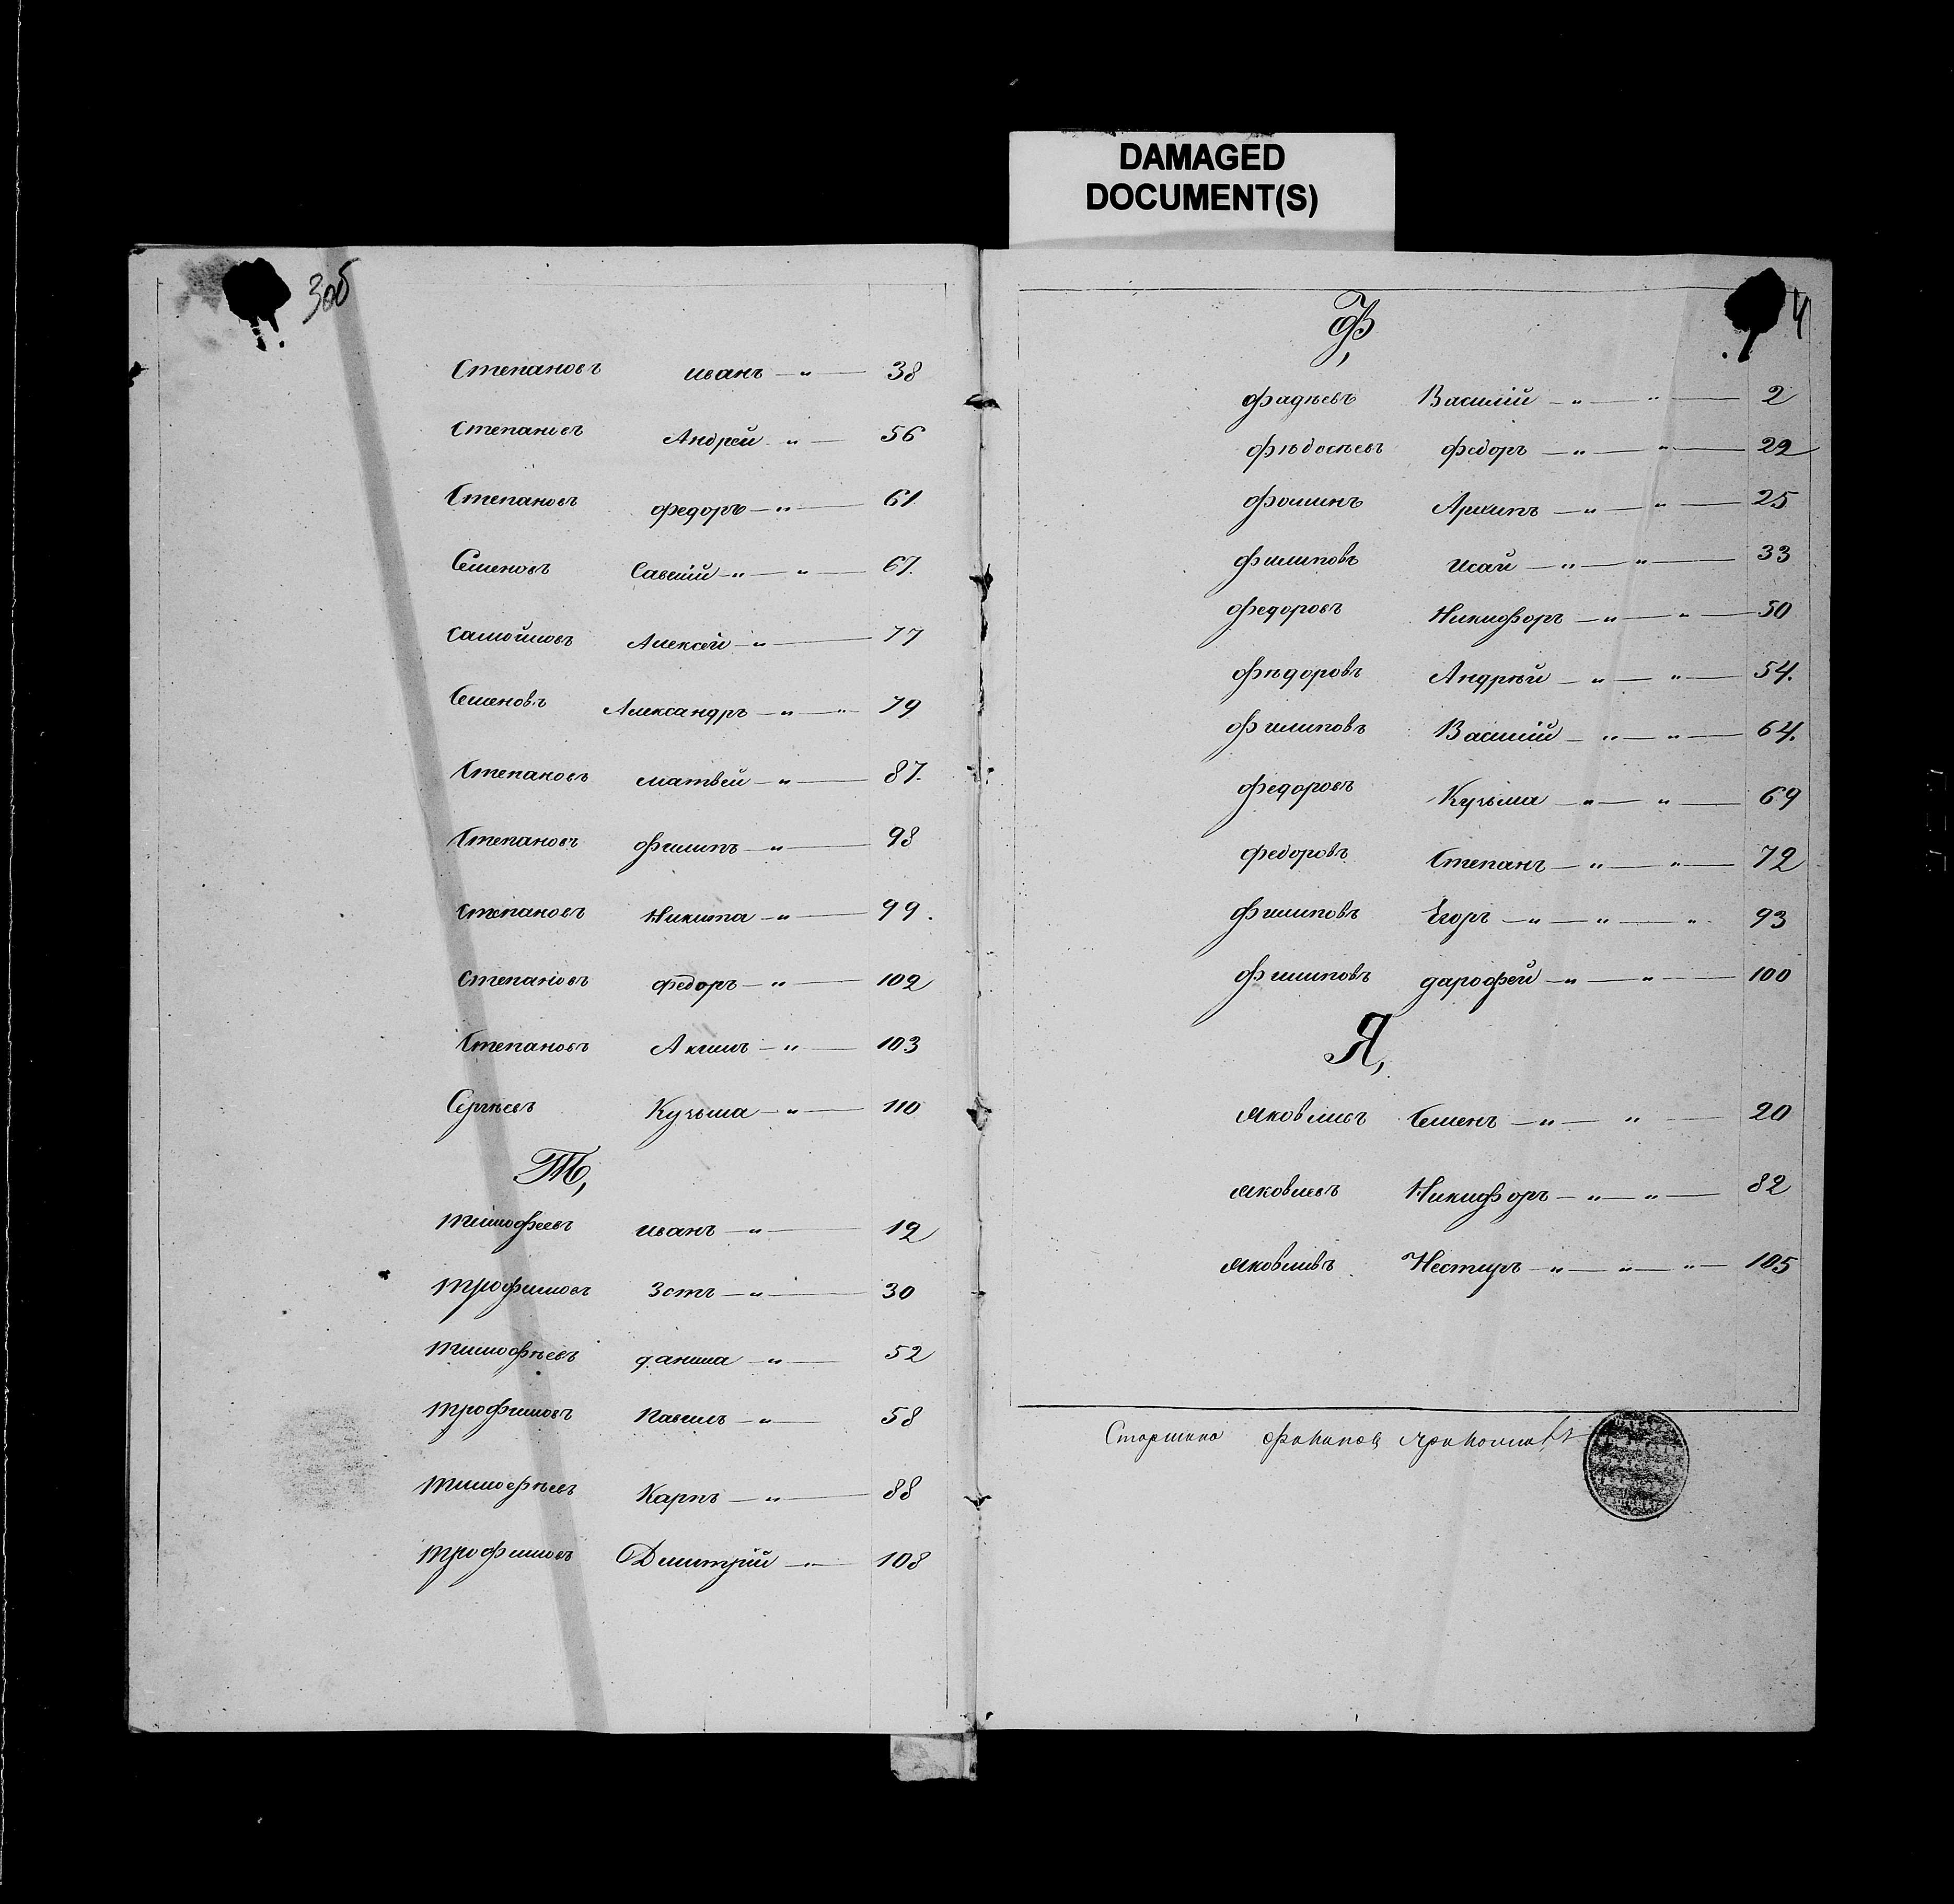 DAMAGED
DOCUMENT(S)
3об
Степановъ иванъ — „ — 38
Степановъ Андрей „ — 56
Степановъ федоръ — „ — 61
Семеновъ Савелий — „ — „ — 67.
самойловъ Алексей — „ — 77
Семеновъ Александръ — „ — „ 79
Степановъ матвей — „ — 87.
Степановъ филипъ — „ — 98
степановъ Никита — „ — 99.
степановъ федоръ — „ — 102
Степановъ Акимъ — „ — 103
Сергѣевъ Кузьма — „ — 110
Т,
тимофеевъ иванъ — „ — 12
трофимовъ Зотъ — „ — 30
тимофѣевъ данила — „ — 52
трофимовъ Павелъ — „ — 58
тимофѣевъ Карпъ — „ — 88
трофимовъ Дмитрий — „ — 108
4
Ф,
фадѣевъ Василій — „ — „ — 2
фѣдосѣевъ федоръ — „ — „ — 22
фоминъ Архипъ — „ — „ — 25
филиповъ Исай — „ — „ — 33
федоровъ Никифоръ — „ — „ — 50
фѣдоровъ Андрѣй — „ — „ — 54.
филиповъ Василий — „ — „ — 64.
федоровъ Кузьма — „ — „ — 69
федоровъ Степанъ — „ — „ — 72
филиповъ Егоръ — „ — „ — „ 93
филиповъ дарофей — „ — „ — 100
Я,
яковлевъ Семенъ — „ — „ — 20
яковлевъ Никифоръ — „ — „ — 82
яковливъ Нестиръ — „ — „ — „ — 105
Старшина